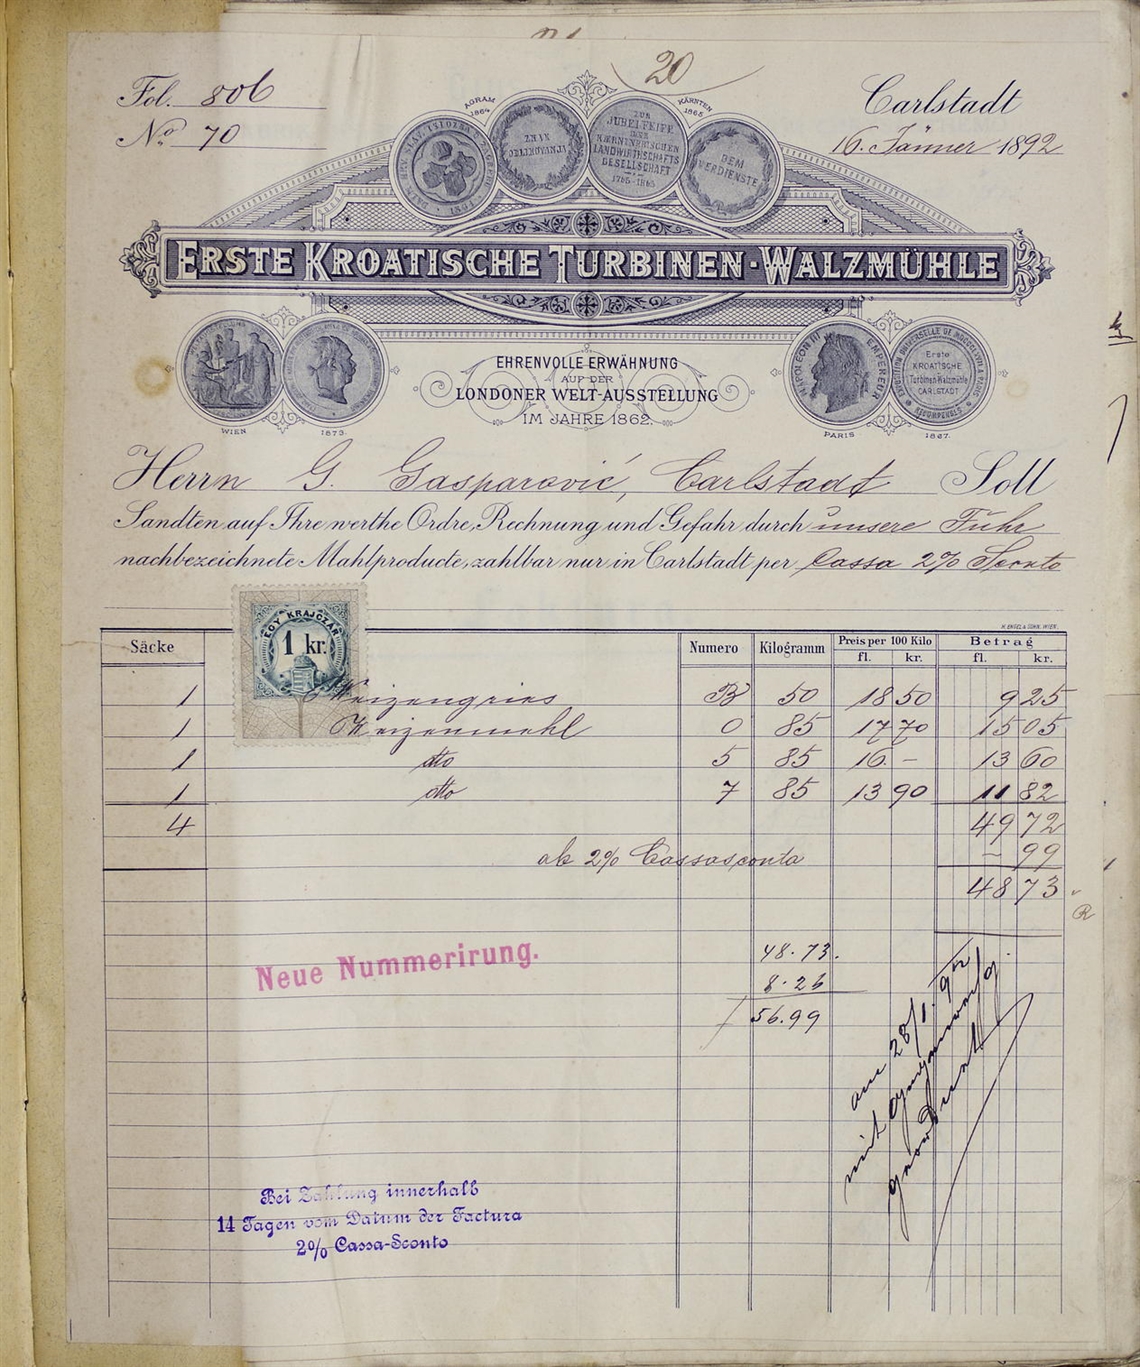 20
Fol. 806
No. 70
Carlstadt
16. Jänner 1892
AGRAM
1864
KÄRNTEN
1865
ZNAK
ODLIKOVANJA
ZUR
JUBELFEIER
DER
KAERNTNERISCHEN
LANDWIRTHSCHAFTS
GESELLSCHAFT
1765-1865
DEM
VERDIENSTE
ERSTE KROATISCHE TURBINEN-WALZMÜHLE
EHRENVOLLE ERWÄHNUNG
AUF DER
LONDONER WELT-AUSSTELLUNG
IM JAHRE 1862.
WIEN 1873.
NAPOLEON III EMPEREUR
EXPOSITION UNIVERSELLE DE MDCCCLXVII A PARIS
RÉCOMPENSES
Erste
KROATISCHE
Turbinen-Walzmühle
CARLSTADT
PARIS 1867.
Herrn G. Gasparović, Carlstadt Soll
Sandten auf Ihre werthe Ordre, Rechnung und Gefahr durch unsere Fuhr
nachbezeichnete Mahlproducte, zahlbar nur in Carlstadt per Cassa 2% Sconto
H. ENGEL & SOHN, WIEN.
EGY KRAJCZÁR
1 kr.
Säcke Numero Kilogramm Preis per 100 Kilo Betrag
fl. kr. fl. kr.
1 Weizengries B 50 18 50 9 25
1 Weizenmehl 0 85 17 70 15 05
1 dto 5 85 16 - 13 60
1 dto 7 85 13 90 11 82
4 49 72
ab 2% Cassasconto - 99
48 73
Neue Nummerirung.
48.73.
8.26
56.99
am 28/1. 92
mit
Bei Zahlung innerhalb
14 Tagen vom Datum der Factura
2% Cassa-Sconto